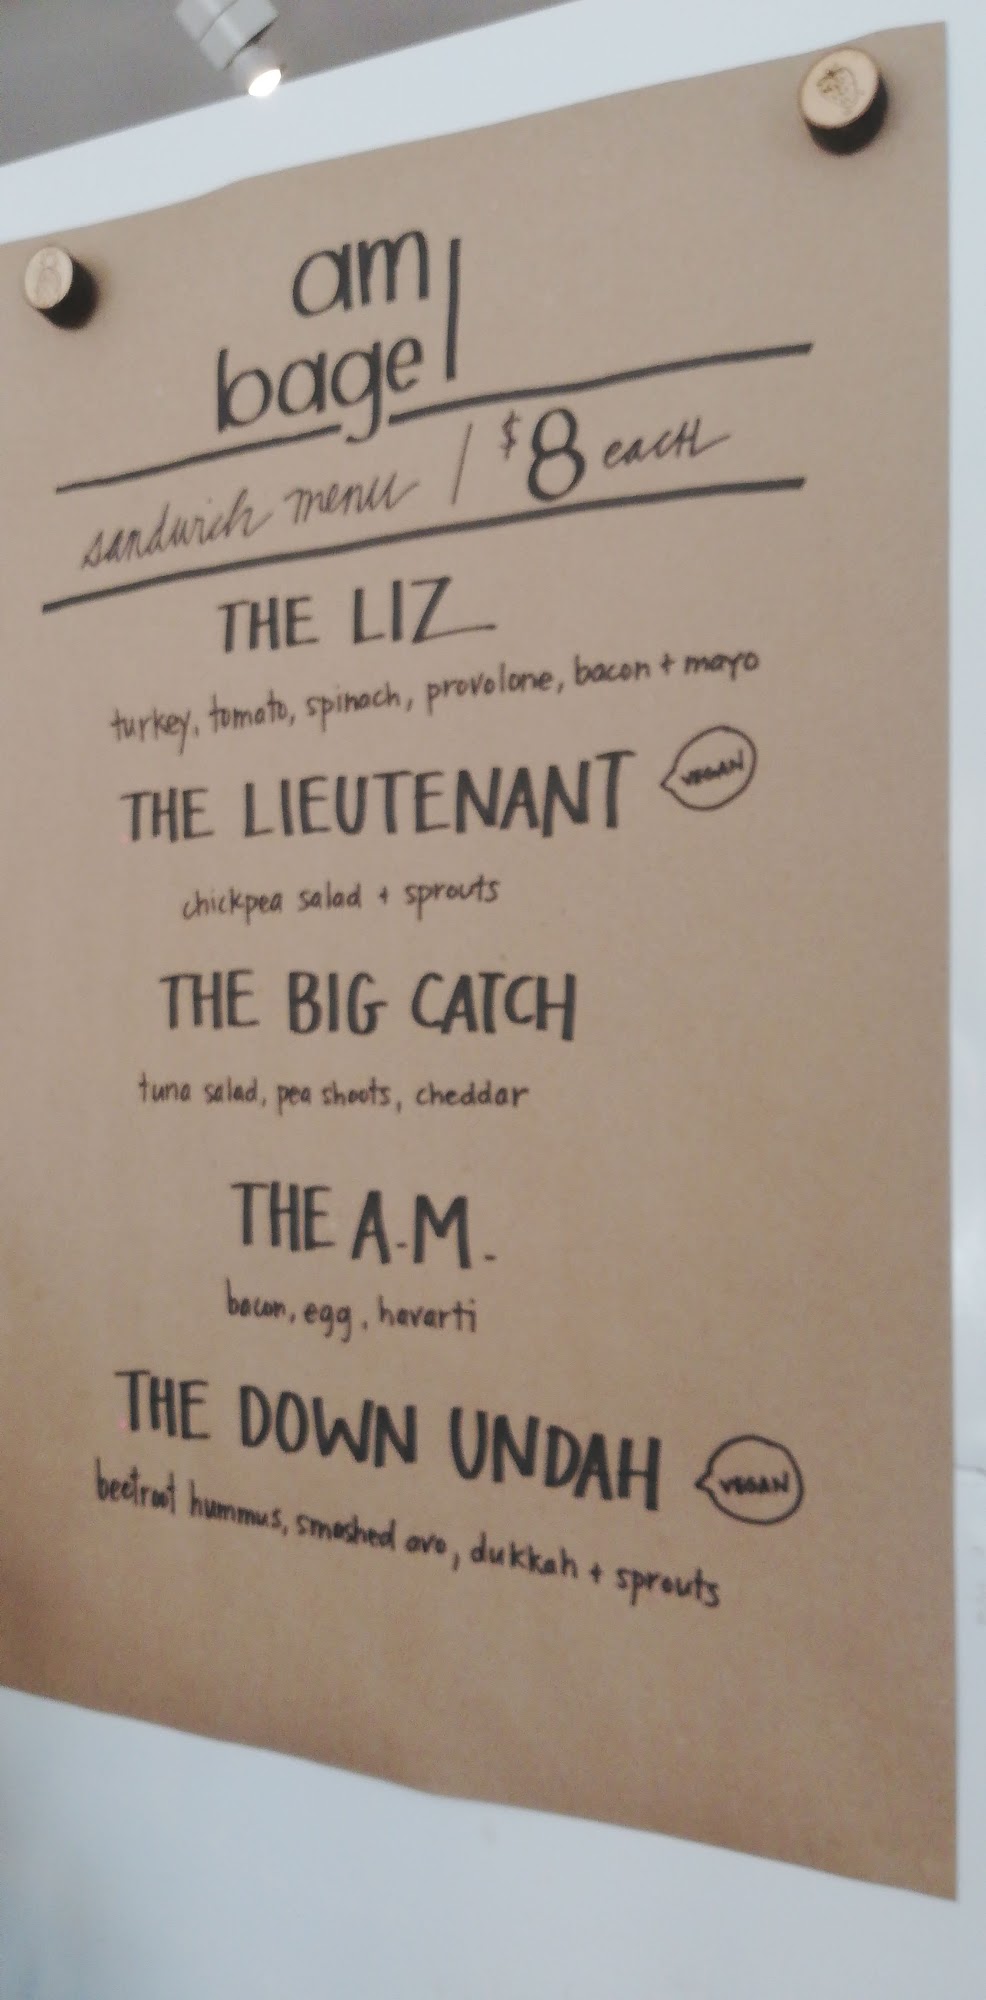 am
bagel
sandwich menu / $8 each
THE LIZ
turkey, tomato, spinach, provolone, bacon + mayo
THE LIEUTENANT VEGAN
chickpea salad + sprouts
THE BIG CATCH
tuna salad, pea shoots, cheddar
THE A.M.
bacon, egg, havarti
THE DOWN UNDAH VEGAN
beetroot hummus, smashed avo, dukkah + sprouts